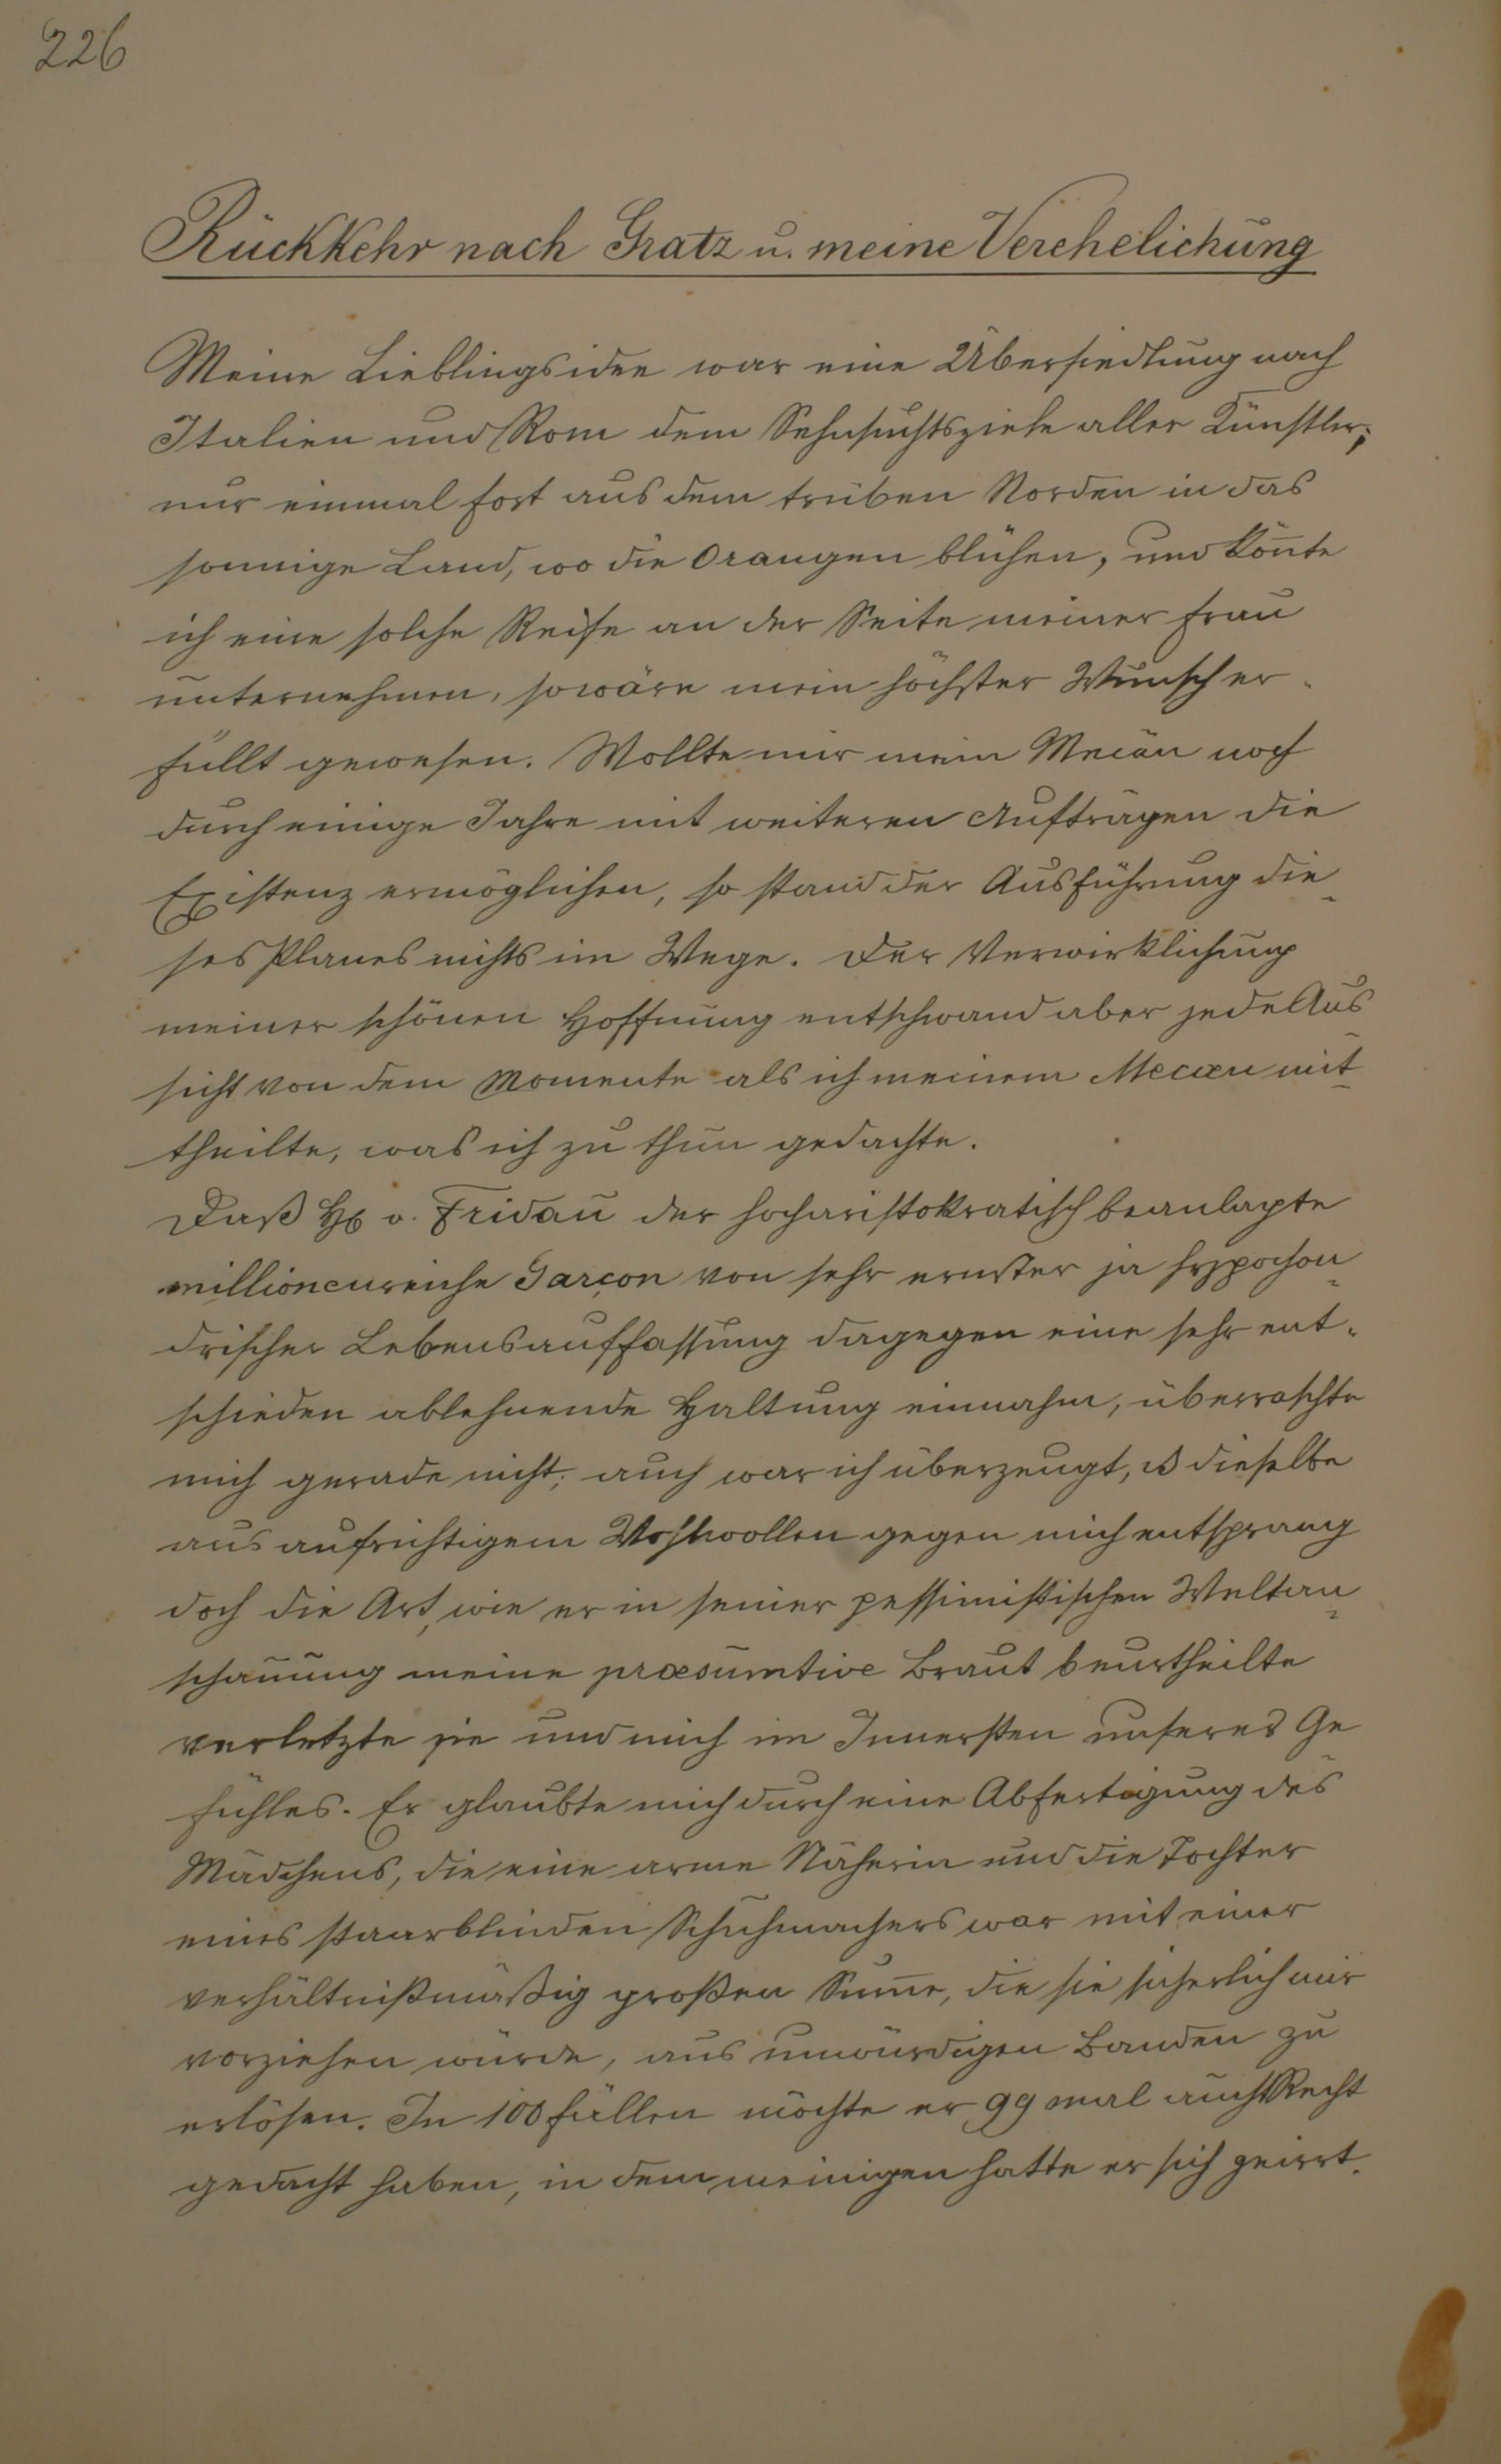 226
Rückkehr nach Gratz u. meine Verehelichung
Meine Lieblingsidee war eine Übersiedlung nach
Italien und Rom dem Sehnsuchtsziele aller Künstler;
nur einmal fort aus dem trüben Norden in das
sonnige Land, wo die Orangen blühen, und kon̄te
ich eine solche Reise an der Seite meiner Frau
unternehmen, so wäre mein höchster Wunsch er-
füllt gewesen. Wollte mir mein Mecän noch
durch einige Jahre mit weiteren Aufträgen die
Existenz ermöglichen, so stand der Ausführung die-
ses Planes nichts im Wege. Der Verwirklichung
meiner schönen Hoffnung entschwand aber jede Aus-
sicht von dem Momente als ich meinem Mecæn mit-
theilte, was ich zu thun gedachte.
Daß H v. Fridau der hocharistokratisch beanlagte
millionenreiche Garçon von sehr ernster ja hypochon-
drischer Lebensauffassung dagegen eine sehr ent-
schieden ablehnende Haltung einnahm, überraschte
mich gerade nicht; auch war ich überzeugt, ß dieselbe
aus aufrichtigem Wohlwollen gegen mich entsprang
doch die Art, wie er in seiner pessimistischen Weltan-
schauung meine præsumtive Braut beurtheilte
verletzte sie und mich im Innersten unseres Ge-
fühles. Er glaubte mich durch eine Abfertigung des
Mädchens, die eine arme Näherin und die Tochter
eines staarblinden Schuhmachers war mit einer
verhältnißmäßig großen Sum̄e, die sie sicherlich mir
vorziehen würde, aus unwürdigen Banden zu
erlösen. In 100 Fällen mochte er 99 mal auch Recht
gedacht haben, in dem meinigen hatte er sich geirrt.